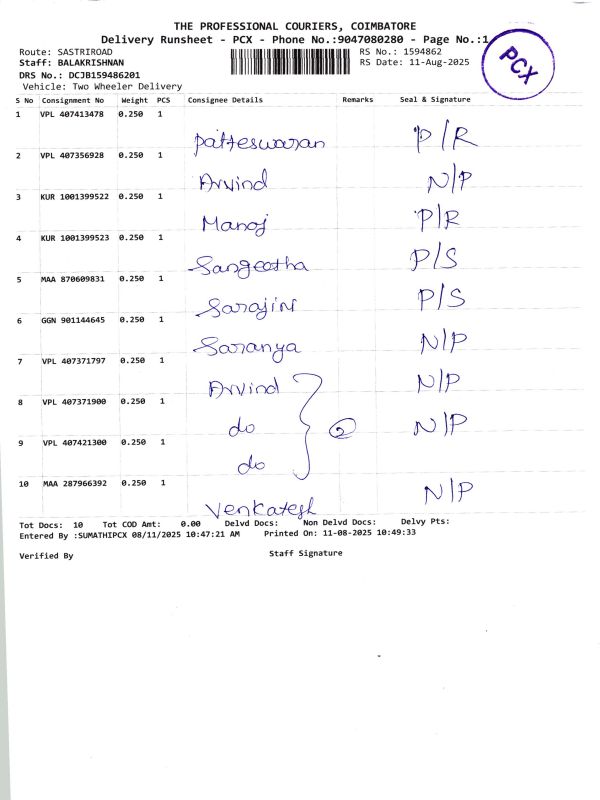 THE PROFESSIONAL COURIERS, COIMBATORE
Delivery Runsheet - PCX - Phone No.:9047080280 - Page No.:1
Route: SASTRIROAD RS No.: 1594862
Staff: BALAKRISHNAN RS Date: 11-Aug-2025
DRS No.: DCJB159486201
Vehicle: Two Wheeler Delivery
PCX
S No Consignment No Weight PCS Consignee Details Remarks Seal & Signature
1 VPL 407413478 0.250 1
Patteswaran P/R
2 VPL 407356928 0.250 1
Arvind N/P
3 KUR 1001399522 0.250 1
Manoj P/R
4 KUR 1001399523 0.250 1
Sangeetha P/S
5 MAA 870609831 0.250 1
Sarojini P/S
6 GGN 901144645 0.250 1
Saranya N/P
7 VPL 407371797 0.250 1
Arvind N/P
8 VPL 407371900 0.250 1
do N/P
9 VPL 407421300 0.250 1
do
10 MAA 287966392 0.250 1
Venkatesh N/P
Tot Docs: 10 Tot COD Amt: 0.00 Delvd Docs: Non Delvd Docs: Delvy Pts:
Entered By :SUMATHIPCX 08/11/2025 10:47:21 AM Printed On: 11-08-2025 10:49:33
Verified By Staff Signature